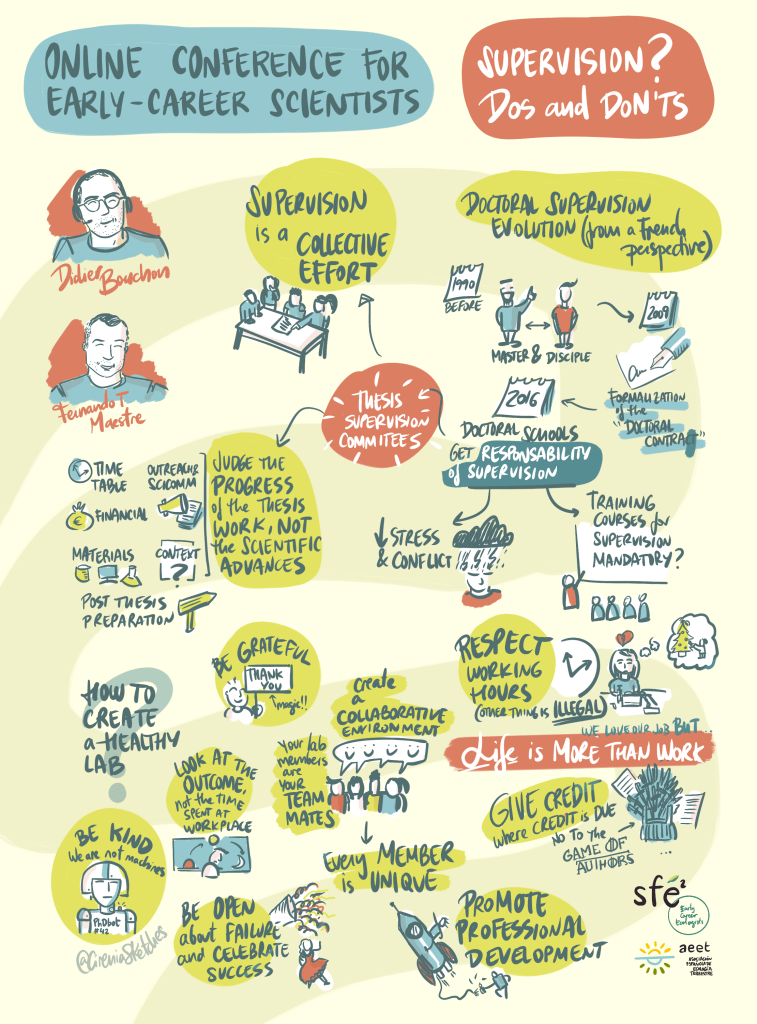 ONLINE CONFERENCE FOR
EARLY-CAREER SCIENTISTS
SUPERVISION?
DOS and DON'TS
Didier Bouchon
Fernando T
Maestre
SUPERVISION
is a COLLECTIVE
EFFORT
DOCTORAL SUPERVISION
EVOLUTION (from a French
perspective)
1990
BEFORE
MASTER & DISCIPLE
2009
FORMALIZATION
of the
"DOCTORAL
CONTRACT"
2016
DOCTORAL SCHOOLS
GET RESPONSABILITY
of SUPERVISION
THESIS
SUPERVISION
COMMITEES
JUDGE THE
PROGRESS
of the THESIS
WORK, NOT
the SCIENTIFIC
ADVANCES
TIME
TABLE
OUTREACH &
SCICOMM
FINANCIAL
MATERIALS
CONTEXT
?
POST THESIS
PREPARATION
STRESS
& CONFLICT
TRAINING
COURSES for
SUPERVISION
MANDATORY?
HOW TO
CREATE
a HEALTHY
LAB
?
BE GRATEFUL
THANK
YOU
magic!!
create
a
COLLABORATIVE
ENVIRONMENT
Your lab
members
are
YOUR
TEAM
MATES
RESPECT
WORKING
HOURS
(OTHER THING is ILLEGAL)
WE LOVE OUR JOB BUT...
Life is MORE THAN WORK
LOOK AT the
OUTCOME,
not the TIME
SPENT AT
WORKPLACE
GIVE CREDIT
where CREDIT is DUE
NO TO the
GAME OF
AUTHORS
...
BE KIND
We are not machines
PhDbot
#42
@CireniaSketches
Every MEMBER
is UNIQUE
BE OPEN
about FAILURE
and CELEBRATE
SUCCESS
PROMOTE
PROFESSIONAL
DEVELOPMENT
sfé²
Early
Career
Ecologists
aeet
ASOCIACIÓN
ESPAÑOLA DE
ECOLOGÍA
TERRESTRE